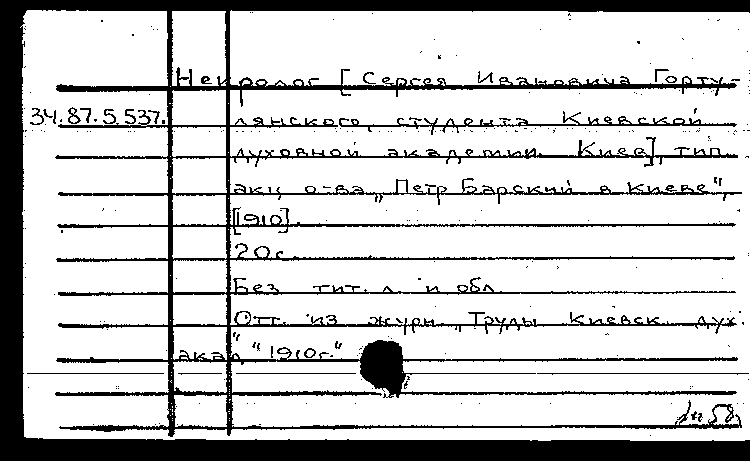 Некролог [Сергея Ивановича Горту-
34.87.5.537. лянского, студента Киевской
духовной академии. Киев], тип.
акц. о-ва „Петр Барский в Киеве",
[1910].
20с.
Без тит. л. и обл.
Отт. из журн. „Труды Киевск. дух.
акад." 1910г."